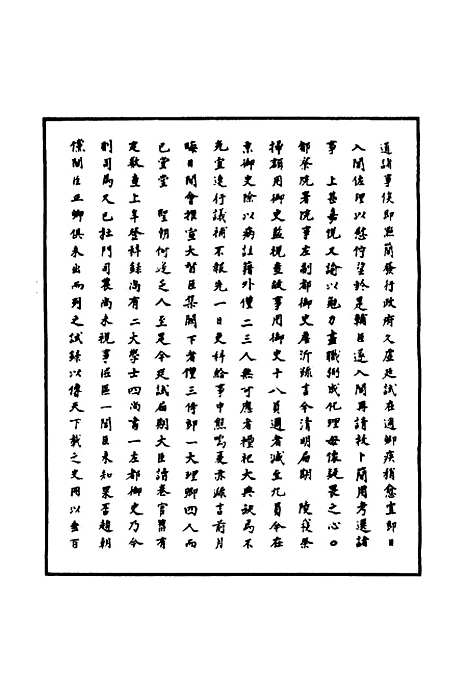 道諸事俟即點簡發行政府久虛廷試在邇卿疾稍愈宜即日
入閣佐理以慰佇望於是輔臣遂入閣再請枚卜簡用考選諸
事　上甚嘉悅又諭以勉力盡職弼成化理毋懷疑畏之心○
都察院署院事左副都御史詹沂孫言今清明屆期　陵寢祭
掃額用御史監視查故事用御史十八員邇者減至九員今在
京御史除以病註籍外僅二三人無可應者禋祀大典缺焉不
允宜速行議補不報先一日吏科給事中熊鳴夏亦源言前月
晦日閣會推宣大督臣集闕下者僅三侍郎一大理卿四人而
已堂堂　聖朝何遂乏人至是今廷試屆期大臣讀卷官舊有
定數查上年登科錄尚有二大學士四尚書一左都御史乃今
則司馬又已杜門司農尚未視事涖區一閣臣未知果否趨朝
儻閣臣正卿俱未出而列之試錄以傳天下載之史冊以垂百